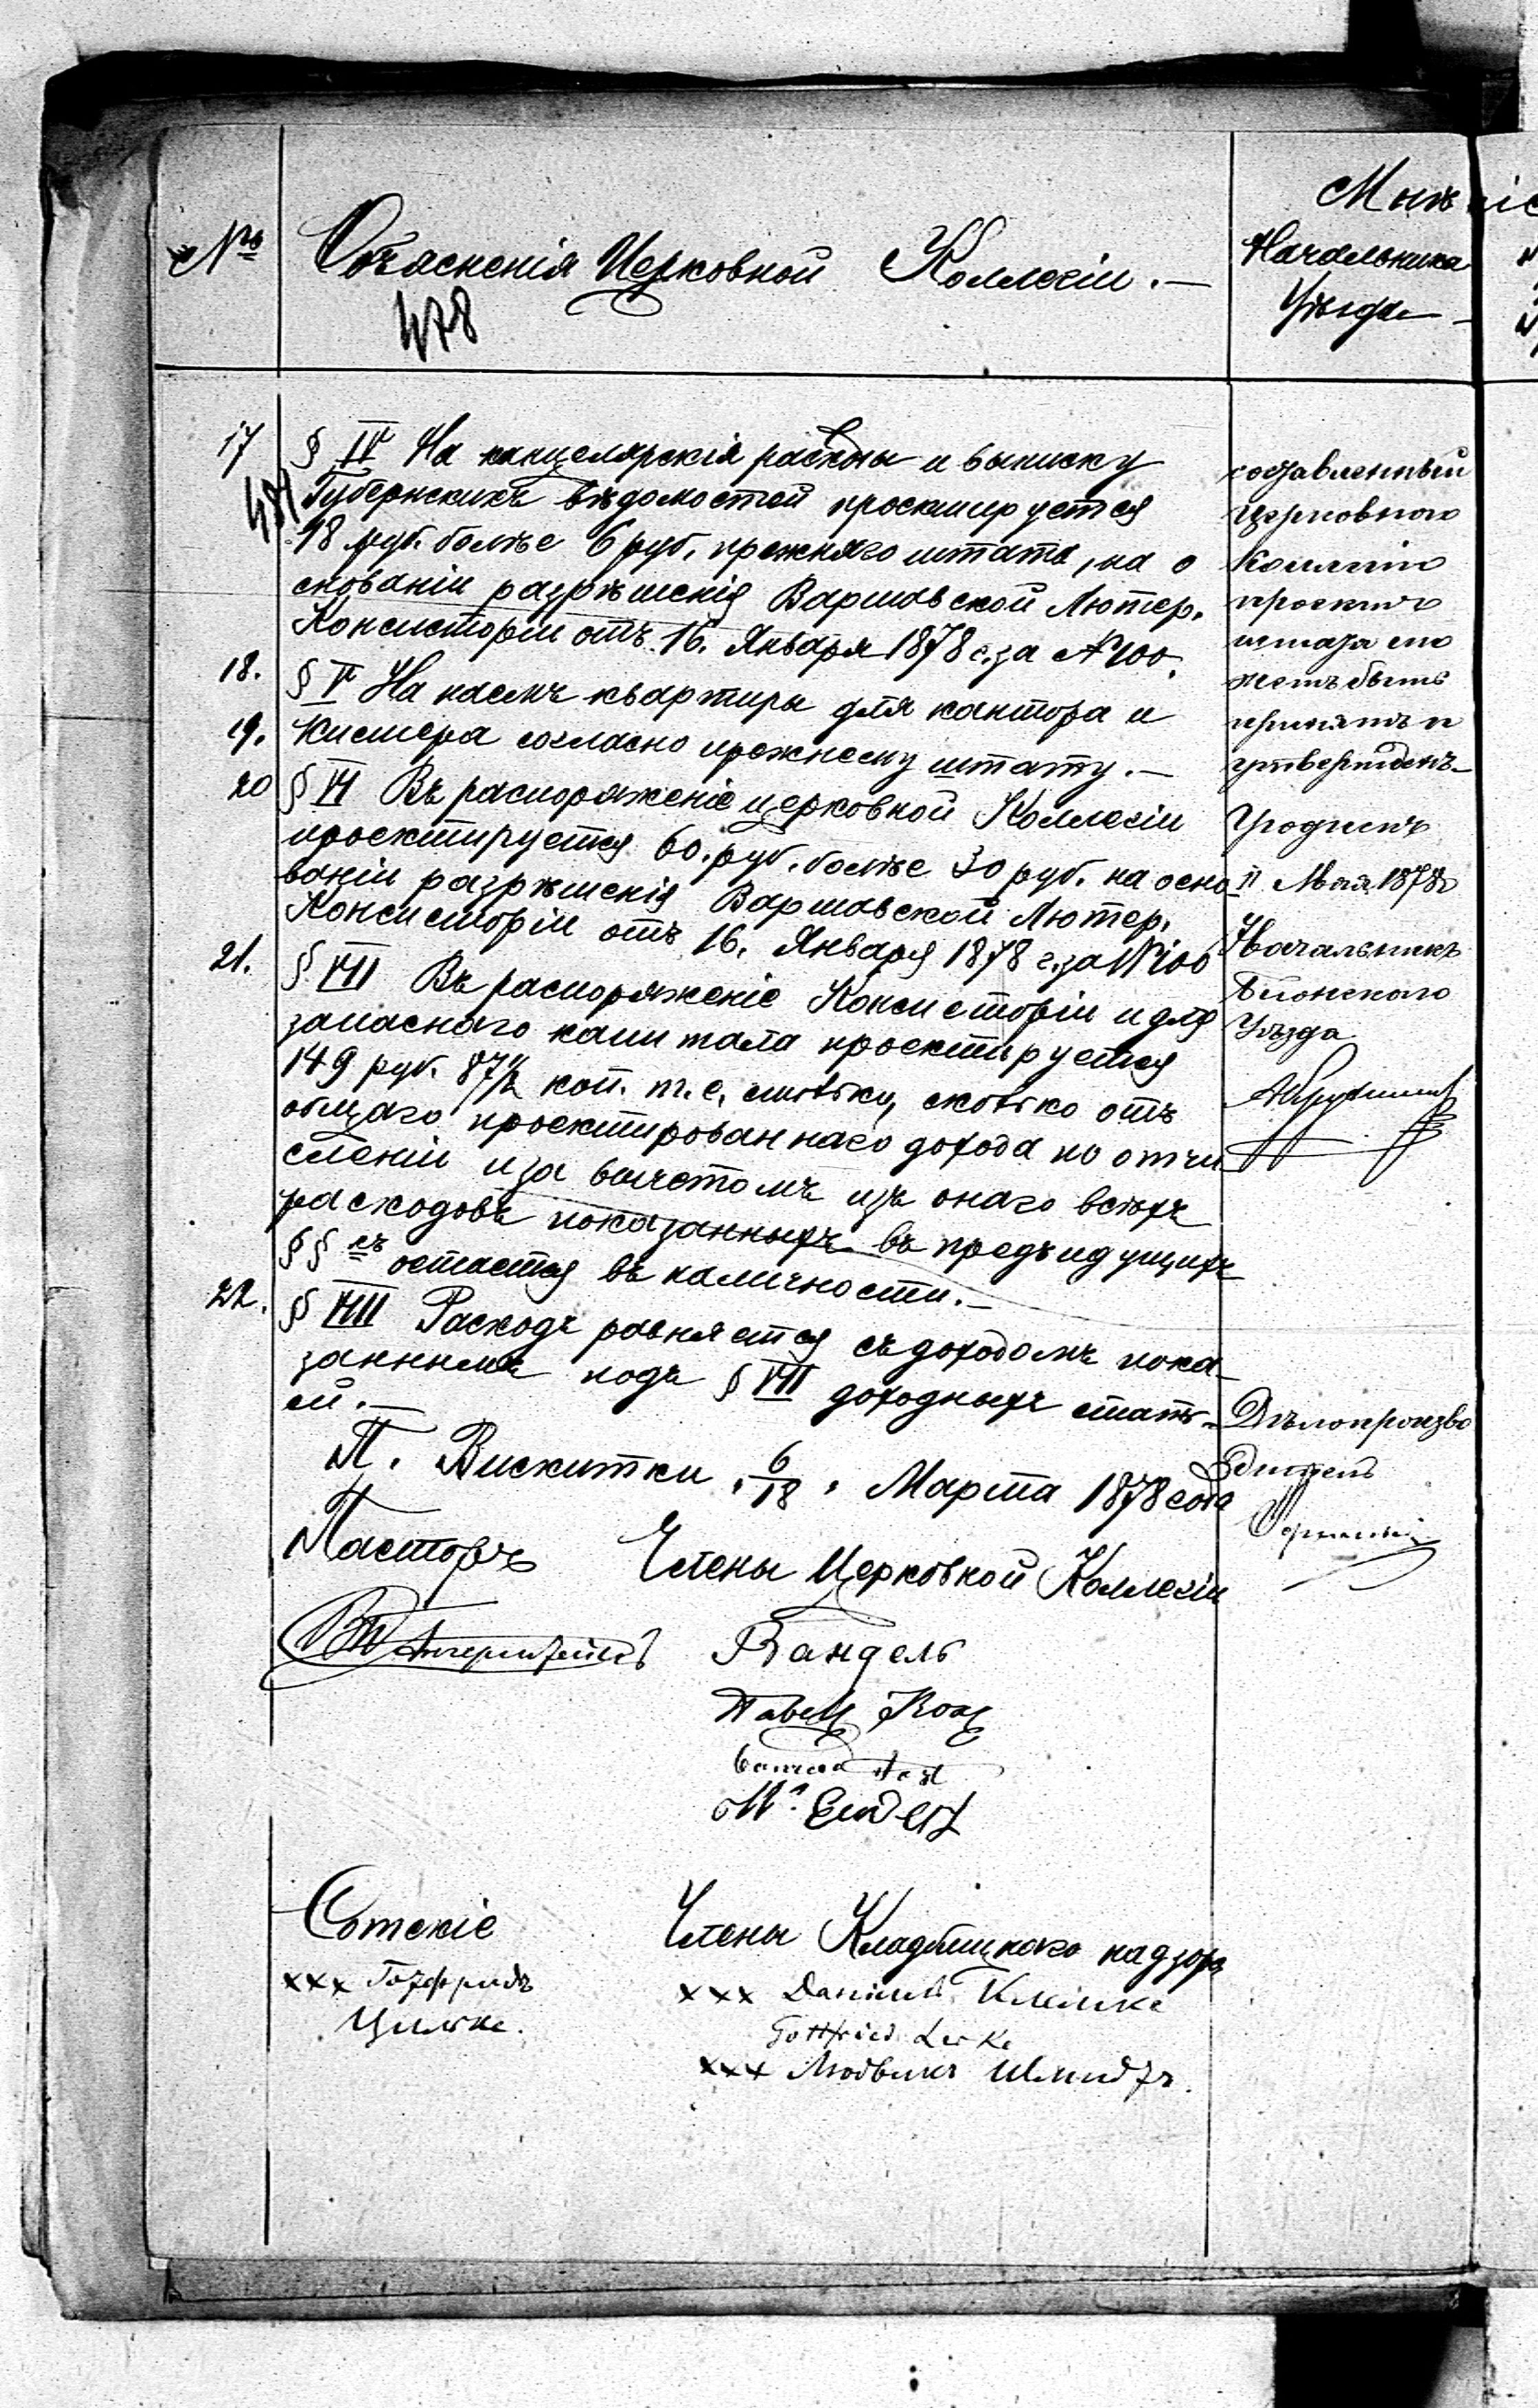 №
Объясненія Церковной Коллегіи.—
478
Мнѣніе
Начальника
Уѣзда
17
§ IV На канцелярскія расходы и выписку
Губернскихъ Вѣдомостей проектируется
18 руб. болѣе 6 руб. прежняго штата, на о
снованіи разрѣшенія Варшавской Лютер.
Консисторіи отъ 16. Января 1878 г. за №100.
18.
§ V На наемъ квартиры для кантора и
19.
Кистера согласно прежнему штату.—
20
§ VI Въ распоряженіе церковной Коллегіи
проектируется 60. руб. болѣе 30 руб. на осно
ваніи разрѣшенія Варшавской Лютер.
Консисторіи отъ 16. Января 1878 г. за №100
21.
§ VII Въ распоряженіе Консисторіи и для
запаснаго капитала проектируется
149 руб. 87½ коп. т. е. столько, сколько отъ
общаго проектированнаго дохода по отчи
сленіи и за вычетомъ изъ онаго всѣхъ
расходовъ показанныхъ въ предъидущихъ
§§ съ остается въ наличности.—
22.
§ VIII Расходъ равняется съ доходомъ пока-
заннымъ подъ § VII доходныхъ стать-
ей.—
П. Вискитки 6/18 Марта 1878 года
Пасторъ
Члены Церковной Коллегіи
Вандель
Павелъ
Сотскіе
ххх Готфридъ
Цилке.
Члены Кладбищнаго надзора
ххх Даніилъ Клинке
Gottfried Lerke
ххх Людвикъ Шмидтъ.
составленный
церковною
Коллегіею
проектъ
штата мо
жетъ быть
принятъ и
утвержденъ
Гродискъ
11 Мая 1878 г
Начальникъ
Блонскаго
Уѣзда
Дѣлопроизво
дитель